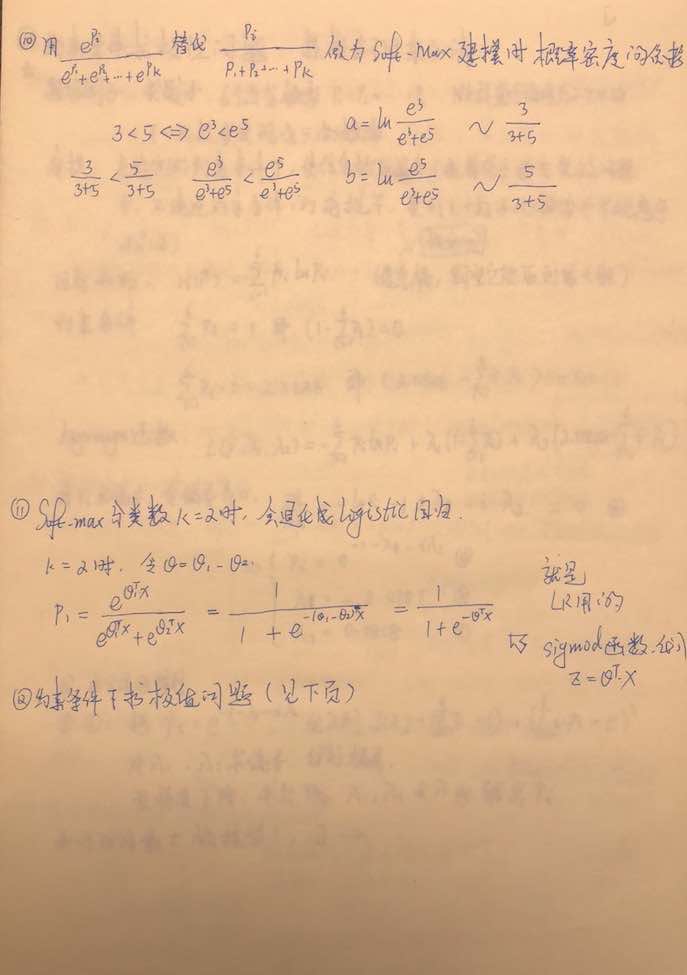 ⑩ 用 e^{P_i} / (e^{P_1}+e^{P_2}+…+e^{P_k}) 替代 P_i / (P_1+P_2+…+P_k) 做为 Soft-Max 建模时概率密度的
3<5 ⟺ e^3<e^5 a = ln e^3/(e^3+e^5) ～ 3/(3+5)
3/(3+5) < 5/(3+5) e^3/(e^3+e^5) < e^5/(e^3+e^5) b = ln e^5/(e^3+e^5) ～ 5/(3+5)
⑪ Soft-max 分类数 K=2时, 会退化成 logistic 回归.
K=2时. 令 θ=θ_1-θ_2.
P_1 = e^{θ_1^T x} / (e^{θ_1^T x}+e^{θ_2^T x}) = 1 / (1+e^{-(θ_1-θ_2)^T x}) = 1 / (1+e^{-θ^T x})
就是
LR用的
sigmod函数.
z=θ^T·x
⑫ 约束条件下求极值问题 (见下页)